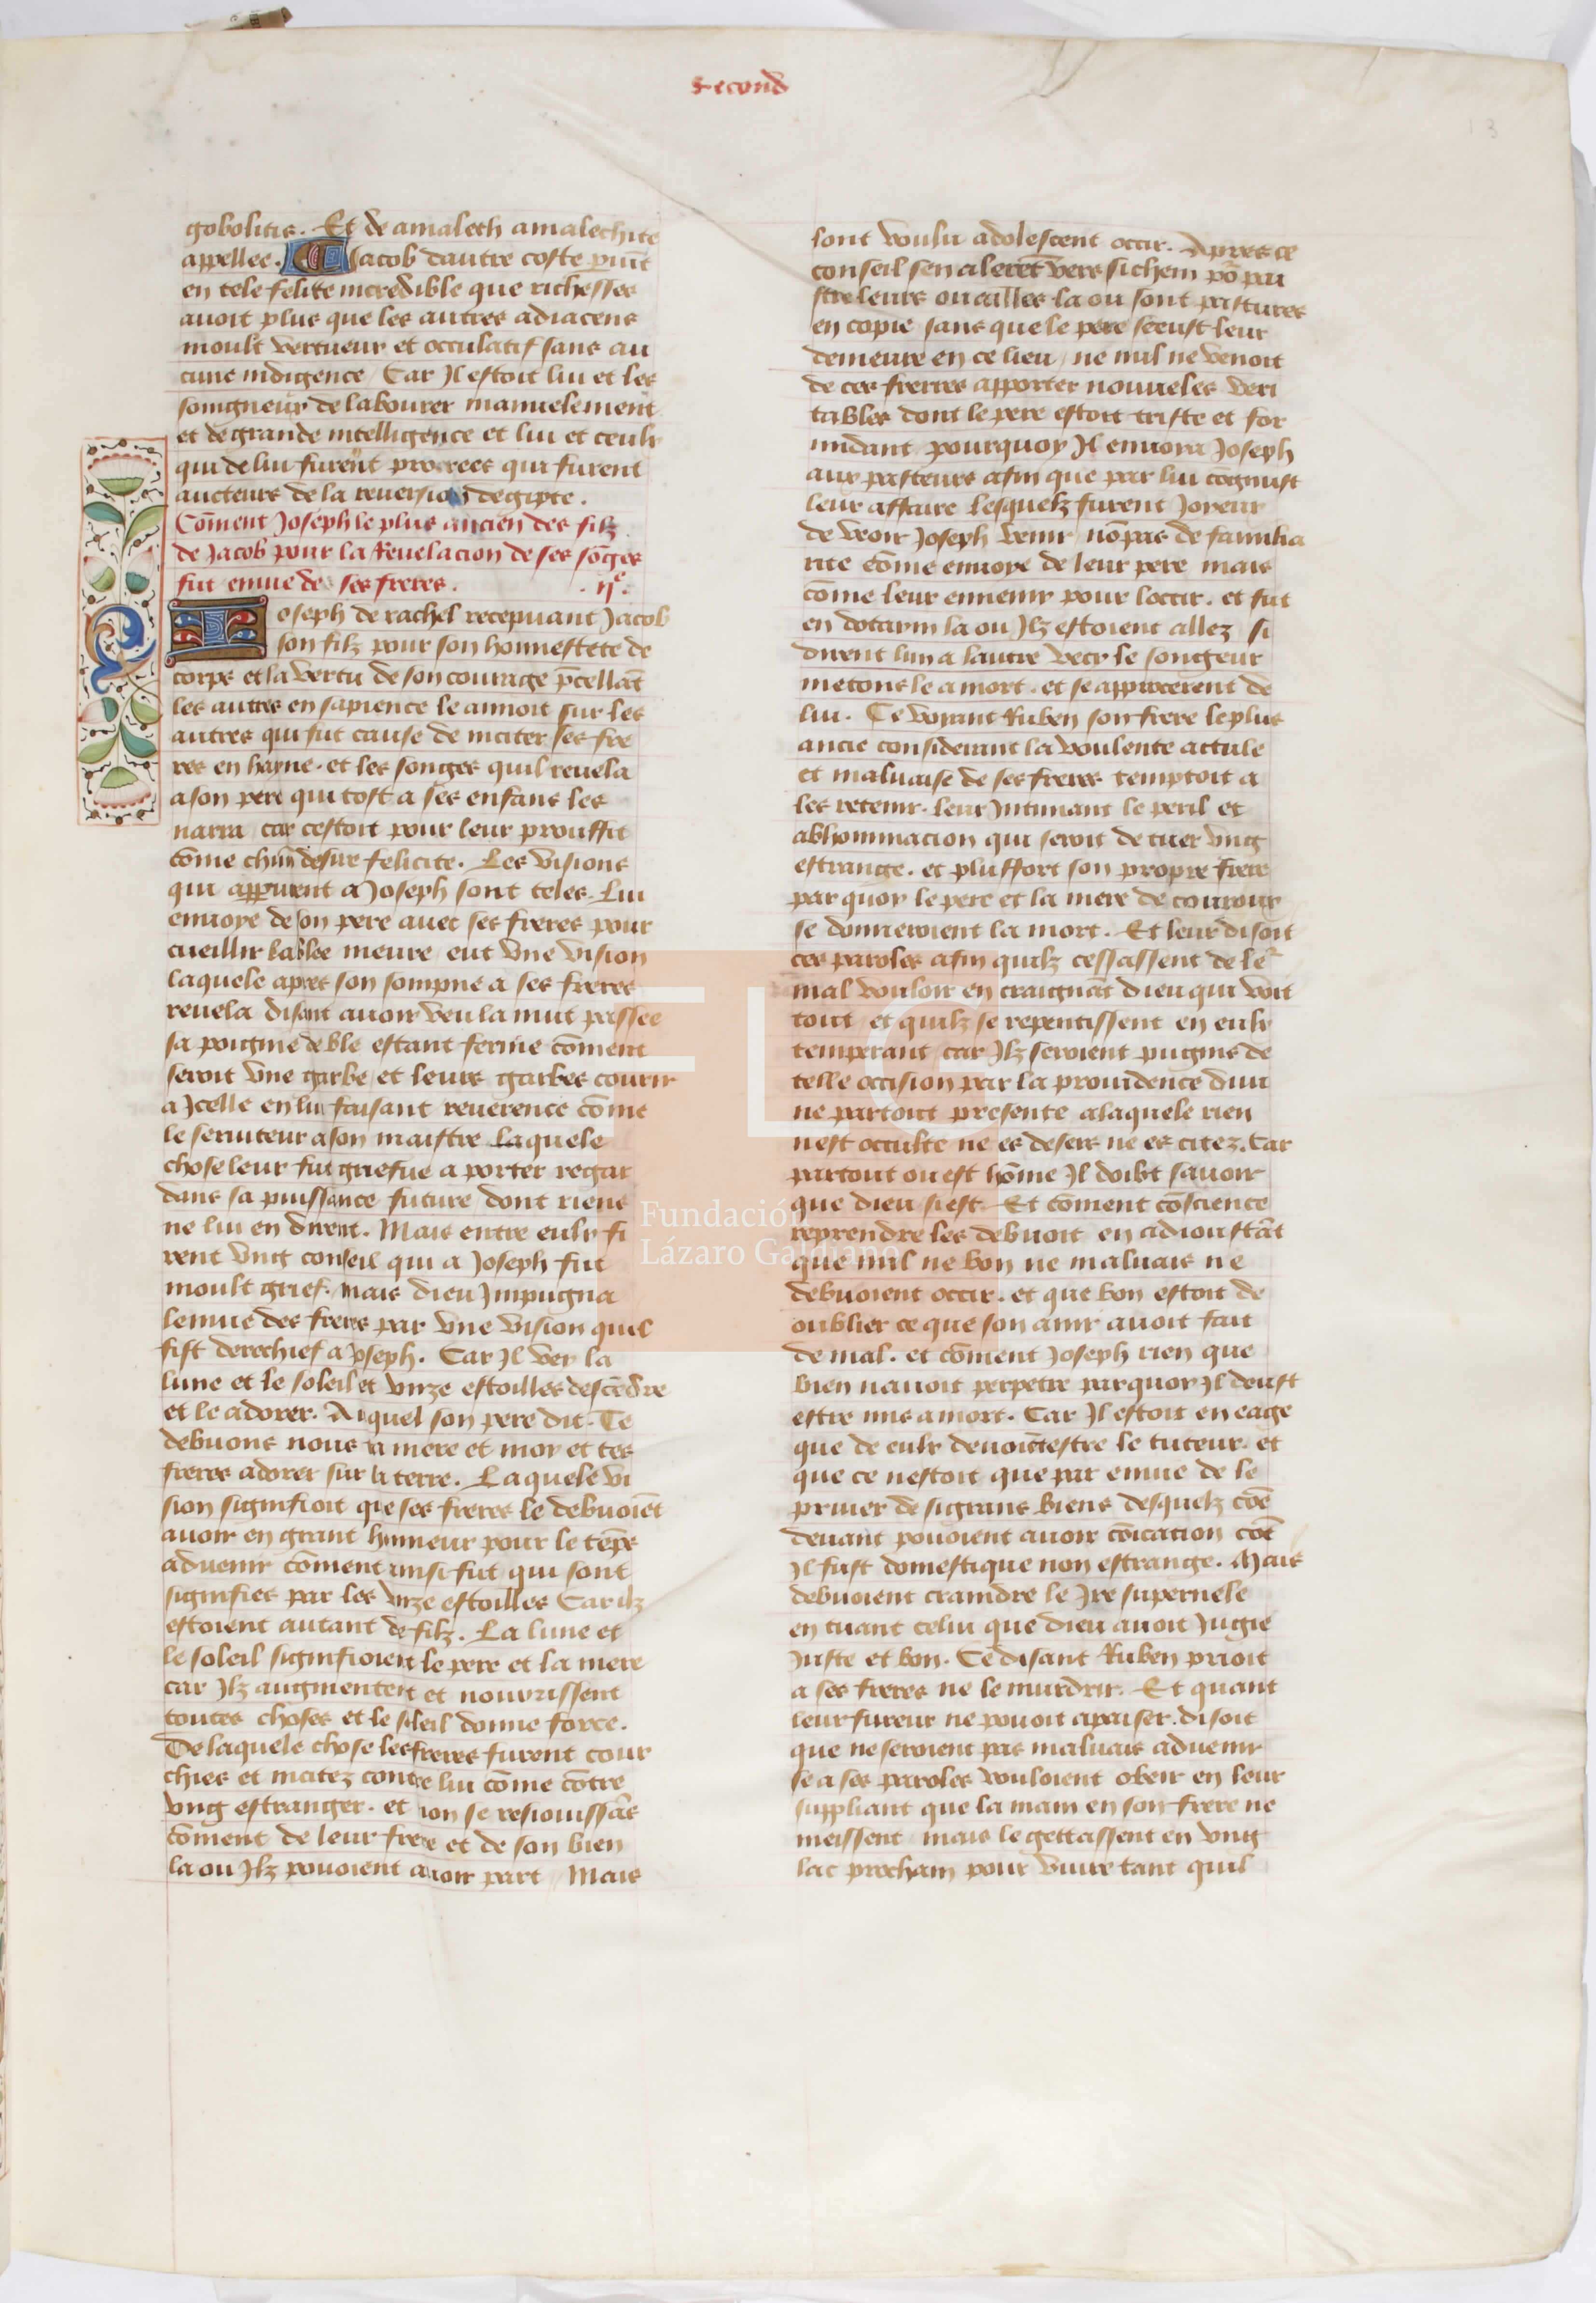 second
13
gobolitis. Et de amalech amalechite
appellee. Jacob dautre coste puīt
en tele felite incredible que richesses
auoit plus que les autres adiacens
moult vertueux et occulatif sans au
cune indigence Car Il estoit lui et les
soingneux de labourer manuelement
et de grande intelligence et lui et ceulx
qui de lui furent procrees qui furent
aucteurs de la reuersion degipte.
Cōment Joseph le plus ancien des filz
de Jacob pour la Reuelacion de ses sōges
fut enuie de ses freres. .ije.
Ioseph de rachel recepuant Jacob
son filz pour son honnestete de
corps et la vertu de son courage p̄cellāt
les autres en sapience le amoit sur les
autres qui fut cause de inciter ses fre
res en hayne. et les songes quil reuela
a son pere qui tost a ses enfans les
narra car cestoit pour leur prouffit
cōme chūn desire felicite. Les visions
qui apparurent a Joseph sont teles. Lui
enuoye de son pere auec ses freres pour
cueillir la blee meure eut vne vision
laquele apres son sompne a ses freres
reuela disant auoir veu la nuit passee
sa poignie de ble estant ferme cōment
seroit vne garbe et leurs garbes courir
a Jcelle en lui faisant reuerence cōme
le seruiteur a son maistre Laquele
chose leur fut griefue a porter regar
dans sa puissance future dont riens
ne lui en dirent. Mais entre eulx fi
rent vng conseil qui a Joseph fut
moult grief. mais dieu Jmpugna
lenuie des freres par vne vision quil
fist derechief a Joseph. Car Jl vey la
lune et le soleil et vnze estoilles descēdre
et le adorer. Auquel son pere dit. Te
debuons nous ta mere et moy et tes
freres adorer sur la terre. Laquele vi
sion signifioit que ses freres le debuoiēt
auoir en grant honneur pour le tēps
aduenir cōment ainsi fut qui sont
signifies par les vnze estoilles Car ilz
estoient autant de filz. La lune et
le soleil signifioient le pere et la mere
car Jlz augmentent et nourrissent
toutes choses et le soleil donne force.
De laquele chose les freres furent cour
chies et incitez contre lui cōme cōtre
vng estranger. et non se resiouissās
cōment de leur frere et de son bien
la ou Jlz pouoient auoir part Mais
sont voulu adolescent occir. Apres ce
conseil sen alerēt vers sichem po² pai
stre leurs ouailles la ou sont pastures
en copie sans que le pere sceust leur
demeure en ce lieu ne nul ne venoit
de ces freres apporter nouueles veri
tables dont le pere estoit triste et for
midant pourquoy Jl enuoia Joseph
aux pasteurs afin que par lui cōgnust
leur affaire lesquelz furent Joyeux
de veoir Joseph venir nō pas de familia
rite cōme enuoye de leur pere mais
cōme leur ennemy pour loccir. et fut
en dotaym la ou Jlz estoient allez si
dirent lun a lautre veez le songeur
metons le a mort. et se approcerent de
lui. Ce voyant Ruben son frere le plus
ancie considerant la voulente actule
et maluaise de ses freres temptoit a
les retenir. leur Jntimant le peril et
abhominacion qui seroit de tuer vng
estrange. et pluffort son propre frere
par quoy le pere et la mere de couroux
se donneroient la mort. Et leur disoit
ces paroles afin quilz cessassent de le²
mal vouloir en craignāt dieu qui voit
tout et quilz se repentissent en eulx
temperant car Jlz seroient pugnis de
telle occision par la prouidence diui
ne partout presente a laquele rien
nest occulte ne es desers ne es citez. Car
partout ou est hōme Jl doibt sauoir
que dieu si est. Et cōment cōscience
reprendre les debuoit en adioustāt
que nul ne bon ne maluais ne
debuoient occir. et que bon estoit de
oublier ce que son amy auoit fait
de mal. et cōment Joseph rien que
bien nauoit perpetre par quoy Jl deust
estre mis a mort. Car Jl estoit en eage
que de eulx deuoiēt estre le tuteur. et
que ce nestoit que par enuie de le
priuer de si grans biens desquelz cōe
deuant pouoient auoir cōicacion cōt
Jl fust domestique non estrange. Mais
debuoient craindre le Jre supernele
en tuant celui que dieu auoit Jugie
Juste et bon. Ce disant Ruben prioit
a ses freres ne le murdrir. Et quant
leur fureur ne pouoit apaiser. disoit
que ne seroient pas maluais aduenir
se a ses paroles vouloient obeir en leur
suppliant que la main en son frere ne
meissent mais le gettassent en vng
lac prochain pour viure tant quil
Fundación
Lázaro Galdiano